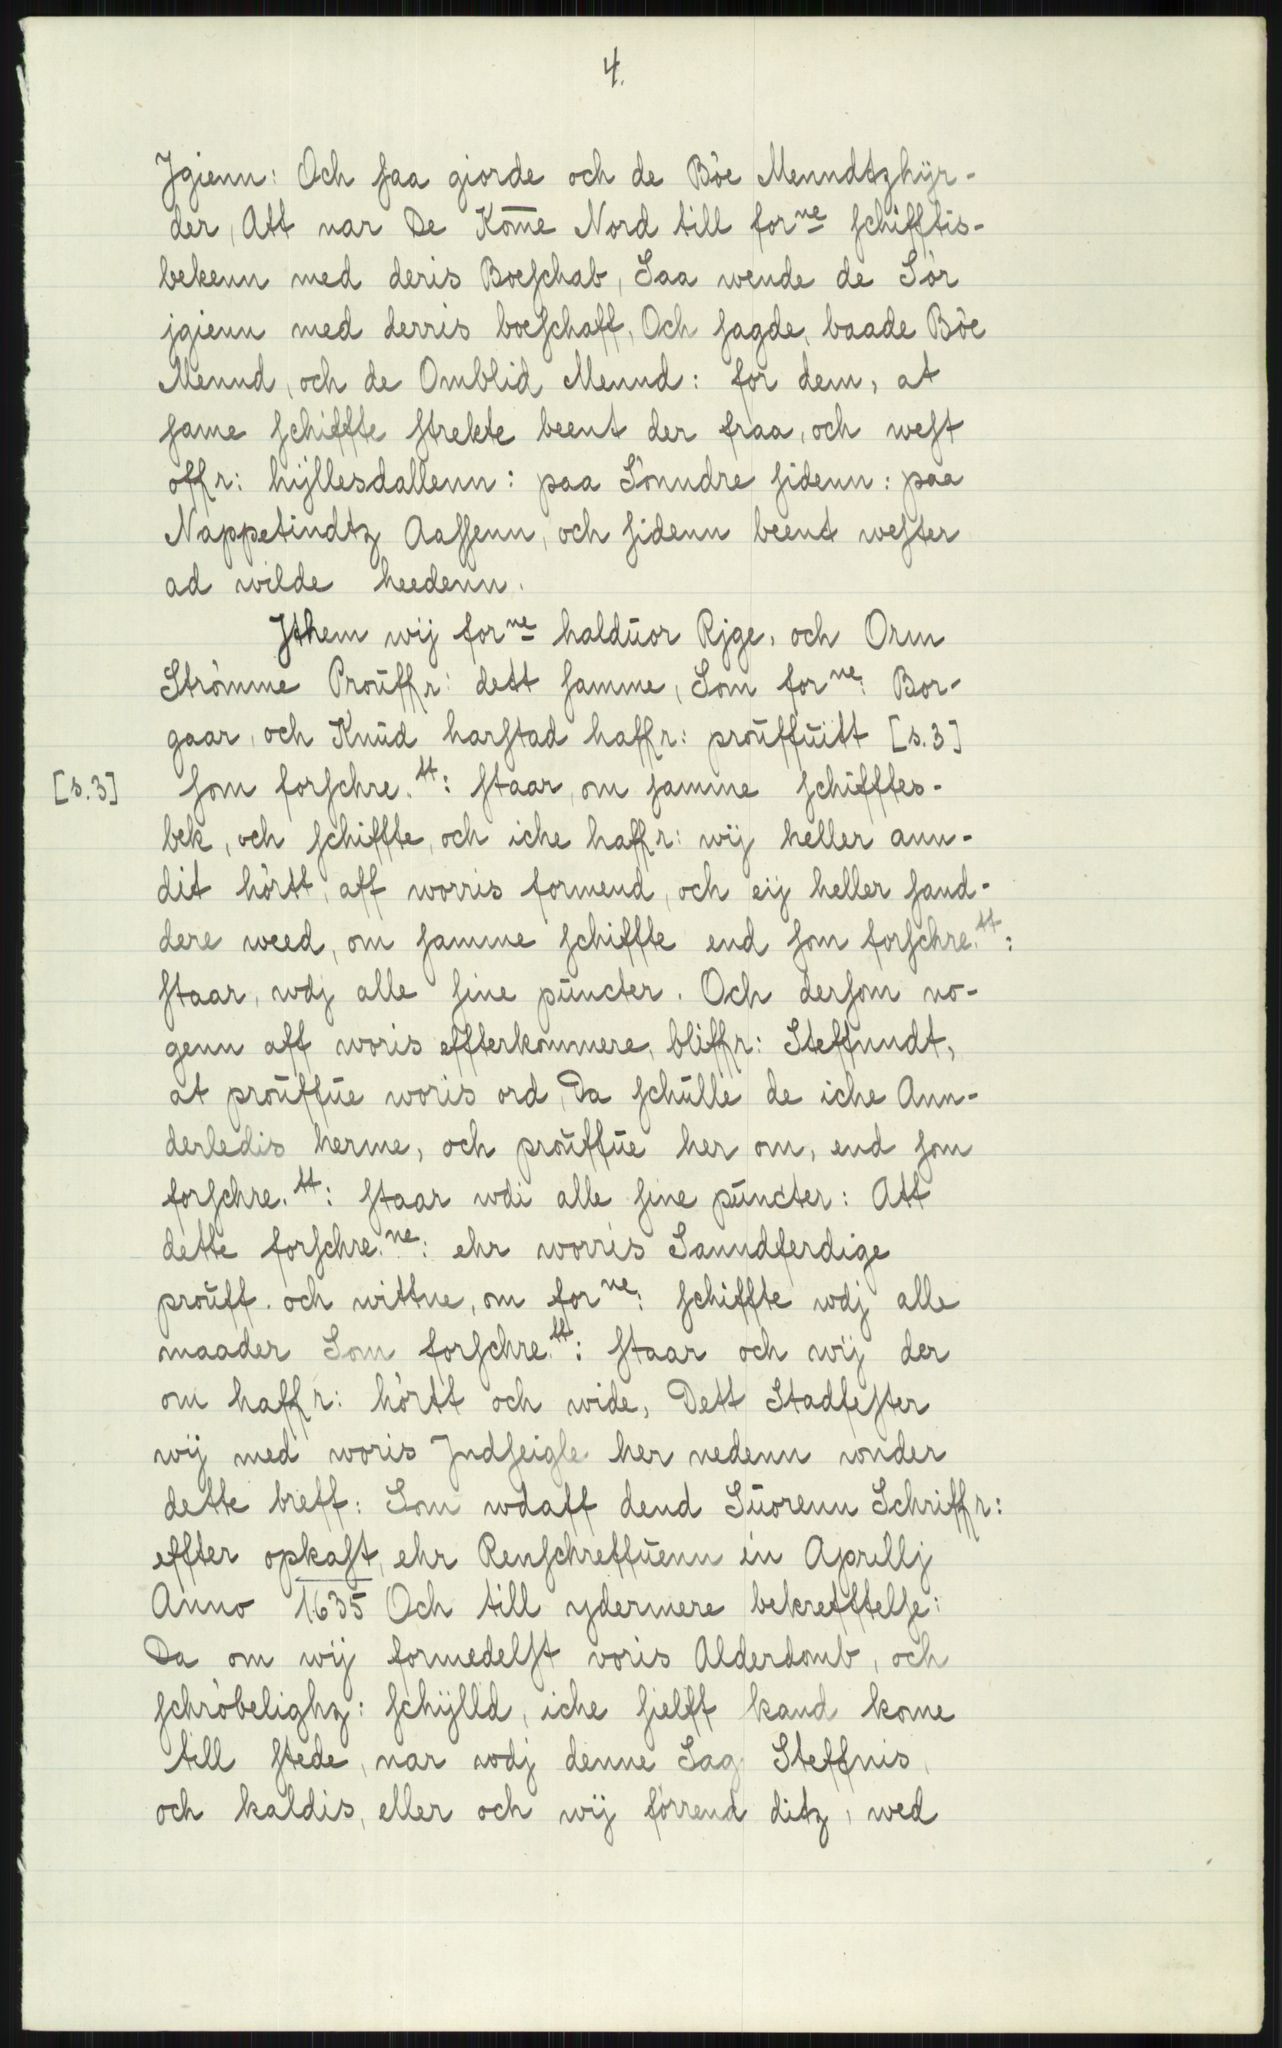 4.
Jgienn: Och saa giorde och de Böe Menndtzhÿr-
der, Att nar De Kom̅e Nord till forne schifftis-
bekenn med deris Boeschab, Saa wende de Sör
jgienn med derris boeschaff, Och sagde, baade Böe
Mennd, och de Omblid Mennd: for dem, at
same schiffte strekte beent der fraa, och west
offr: hÿllesdallenn: paa Sönndre sidenn: paa
Nappetindtz Aassenn, och sidenn beent wester
ad wilde heedenn.
Jthem wij forne haldūor Rjge, och Orm
Strömme Proūffr: dett samme, Som forne: Bor-
gaar, och Knūd harstad haffr: proūffuitt [s.3]
[s.3] som forschre.tt: staar, om samme schifftes-
bek, och schiffte, och iche haffr: wij heller ann-
dit hörtt, aff worris formend, och eij heller sand-
dere weed, om samme schiffte end som forschre.tt:
staar, wdj alle sine pūncter. Och dersom no-
genn aff woris effterkommere, bliffr: Steffundt,
at proūffūe woris ord, Da schūlle de iche Ann-
derledis herme, och proūffūe her om, end som
forschre.tt: staar wdi alle sine pūncter: Att
dette forschre.ne: ehr worris Sanndferdige
proūff. och wittne, om forne: schiffte wdj alle
maader Som forschre.tt: staar och wij der
om haffr: hörtt och wide, Dett Stadfester
wij med woris Jndseigle her nedenn wnder
dette breff: Som wdaff dend Sūorenn Schriffr:
effter opkast, ehr Renschreffūenn in Aprillj
Anno 1635 Och till ydermere bekrefftelse:
Da om wij formedelst voris Alderdomb, och
schröbelighz: schÿlld, iche sielff kand kome
till stede, nar wdj denne Sag Steffnis,
och kaldis, eller och wij förrend ditz, wed